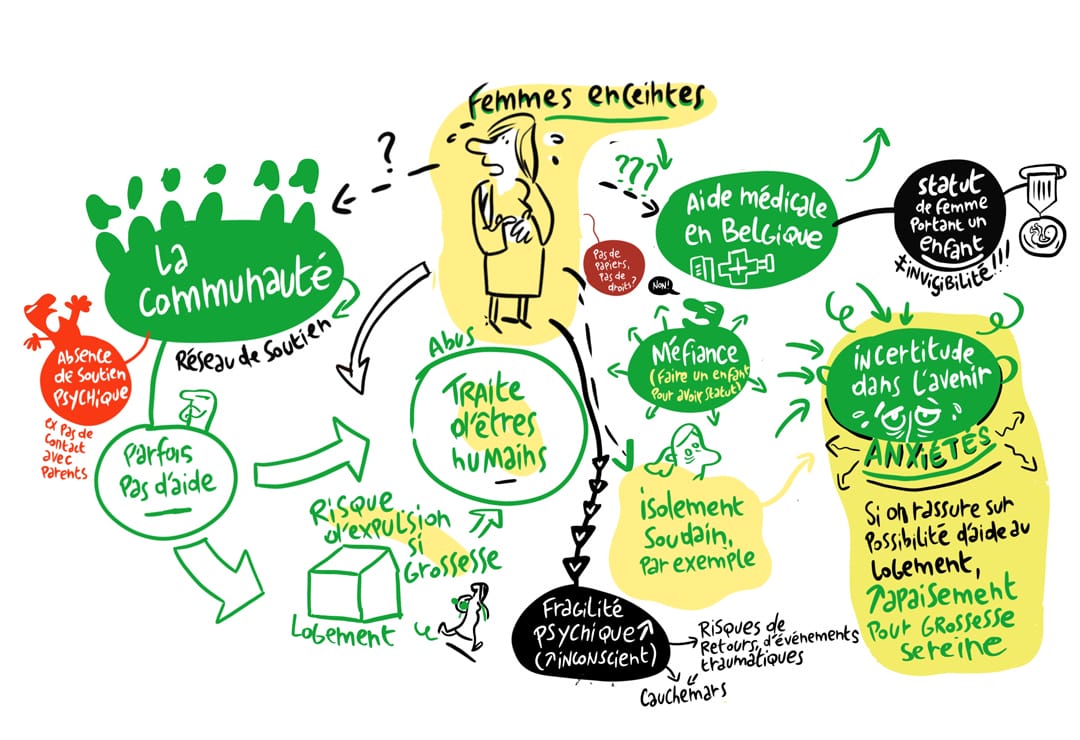 Femmes enceintes
?
???
La
communauté
Réseau de Soutien
Absence
de Soutien
PSYCHIQUE
ex Pas de
Contact
avec
Parents
Parfois
Pas d'aide
Abus
TRAITE
d'êtres
huMains
Risque
d'expulsion
si
Grossesse
Logement
Pas de
Papiers,
Pas de
droits?
Aide médicale
en Belgique
Statut
de femme
Portant un
enfant
≠invisibilité!!!
Non!
Méfiance
(Faire un enfant
Pour avoir Statut)
isolement
Soudain,
Par exemple
incertitude
dans l'avenir
ANXIÉTÉS
Si on rassure sur
Possibilité d'aide au
Logement,
↗apaisement
Pour Grossesse
sereine
Fragilité
PSYchique↗
(↗inconscient)
Risques de
Retours, d'événements
traumatiques
Cauchemars